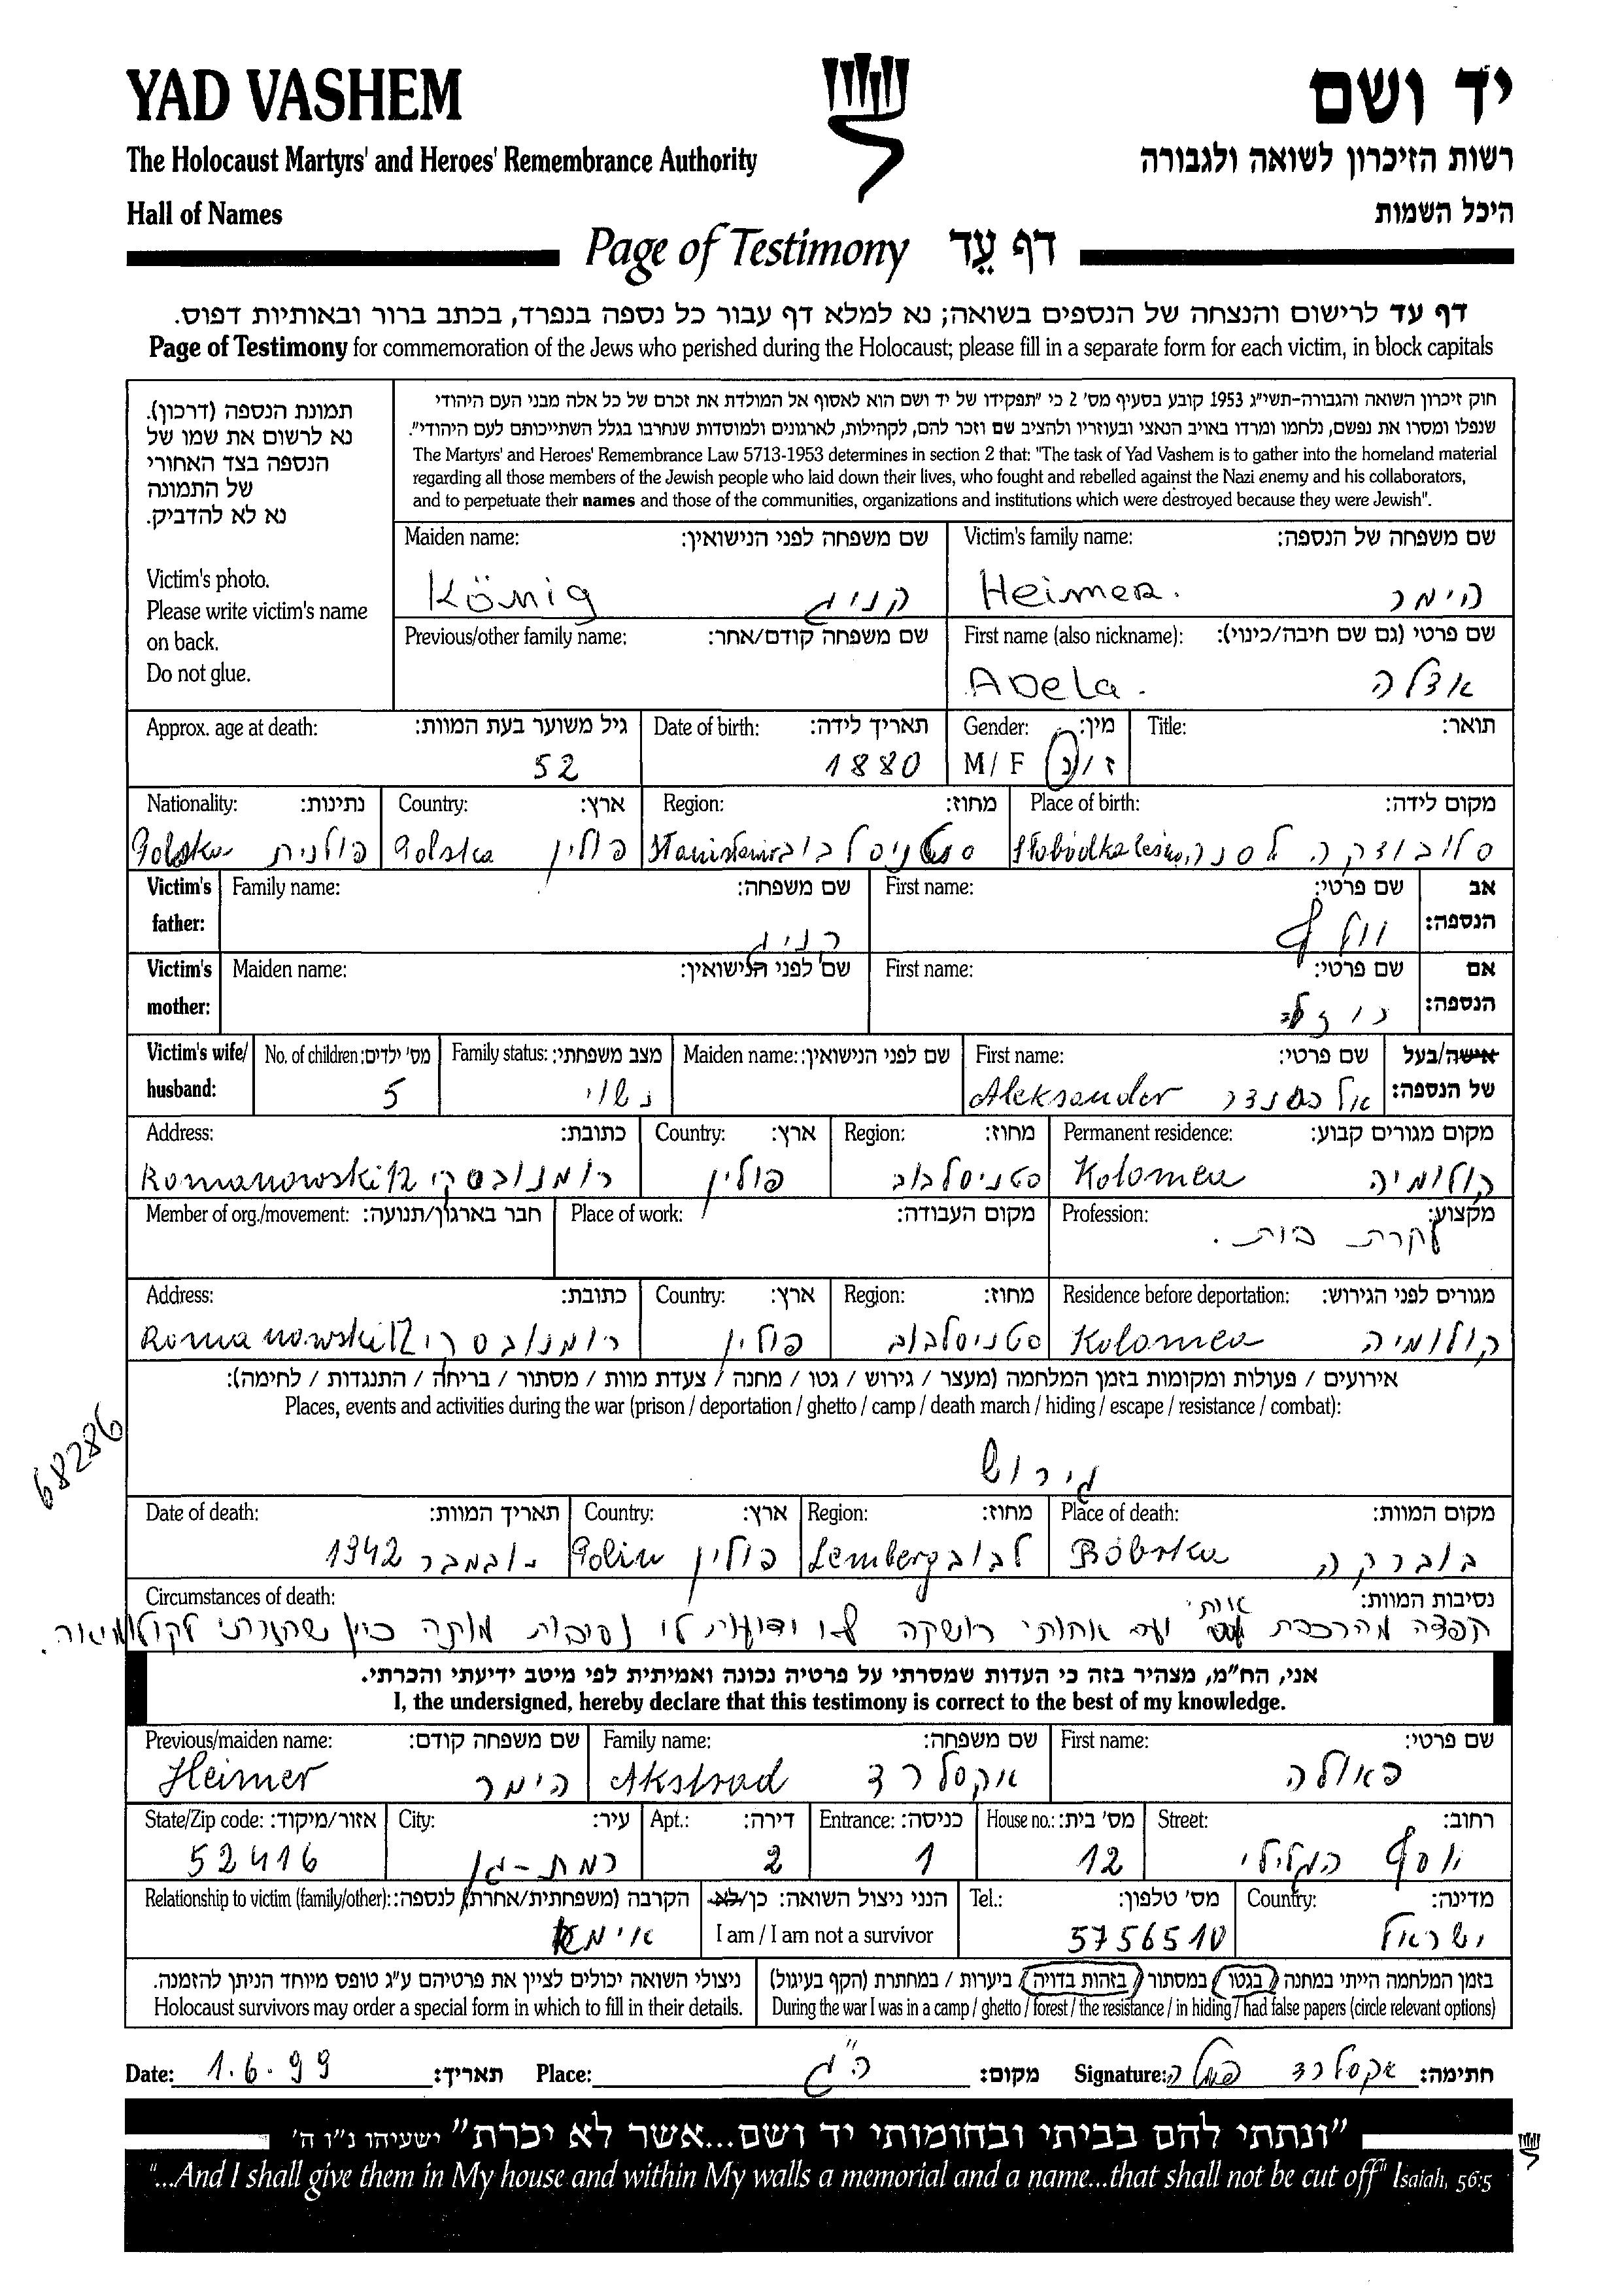 YAD VASHEM
יד ושם
The Holocaust Martyrs' and Heroes' Remembrance Authority
רשות הזיכרון לשואה ולגבורה
Hall of Names
היכל השמות
Page of Testimony דף עֵד
דף עד לרישום והנצחה של הנספים בשואה; נא למלא דף עבור כל נספה בנפרד, בכתב ברור ובאותיות דפוס.
Page of Testimony for commemoration of the Jews who perished during the Holocaust; please fill in a separate form for each victim, in block capitals
תמונת הנספה (דרכון).
נא לרשום את שמו של
הנספה בצד האחורי
של התמונה
נא לא להדביק.
Victim's photo.
Please write victim's name
on back.
Do not glue.
חוק זיכרון השואה והגבורה-תשי"ג 1953 קובע בסעיף מס' 2 כי "תפקידו של יד ושם הוא לאסוף אל המולדת את זכרם של כל אלה מבני העם היהודי
שנפלו ומסרו את נפשם, נלחמו ומרדו באויב הנאצי ובעוזריו ולהציב שם וזכר להם, לקהילות, לארגונים ולמוסדות שנחרבו בגלל השתייכותם לעם היהודי".
The Martyrs' and Heroes' Remembrance Law 5713-1953 determines in section 2 that: "The task of Yad Vashem is to gather into the homeland material
regarding all those members of the Jewish people who laid down their lives, who fought and rebelled against the Nazi enemy and his collaborators,
and to perpetuate their names and those of the communities, organizations and institutions which were destroyed because they were Jewish".
Maiden name: שם משפחה לפני הנישואין: Victim's family name: שם משפחה של הנספה:
König קניג Heimer. הימר
Previous/other family name: שם משפחה קודם/אחר: First name (also nickname): שם פרטי (גם שם חיבה/כינוי):
Adela. אדלה
Approx. age at death: גיל משוער בעת המוות: Date of birth: תאריך לידה: Gender: מין: Title: תואר:
52 1880 M/F ז/נ
Nationality: נתינות: Country: ארץ: Region: מחוז: Place of birth: מקום לידה:
Polska פולנית Polska פולין Stanisławow סטניסלבוב Słobódka leśna סלובודקה לסנה
Victim's father: Family name: שם משפחה: First name: שם פרטי: אב הנספה:
קניג וולף
Victim's mother: Maiden name: שם לפני הנישואין: First name: שם פרטי: אם הנספה:
Victim's wife/ husband: No. of children: מס' ילדים: Family status: מצב משפחתי: Maiden name: שם לפני הנישואין: First name: שם פרטי: אישה/בעל של הנספה:
5 נשוי Aleksander אלכסנדר
Address: כתובת: Country: ארץ: Region: מחוז: Permanent residence: מקום מגורים קבוע:
Romanowski 12 רומנובסקי פולין סטניסלבוב Kolomea קולומיה
Member of org./movement: חבר בארגון/תנועה: Place of work: מקום העבודה: Profession: מקצוע:
עקרת בית.
Address: כתובת: Country: ארץ: Region: מחוז: Residence before deportation: מגורים לפני הגירוש:
Romanowski 12 רומנובסקי פולין סטניסלבוב Kolomea קולומיה
אירועים / פעולות ומקומות בזמן המלחמה (מעצר / גירוש / גטו / מחנה / צעדת מוות / מסתור / בריחה / התנגדות / לחימה):
Places, events and activities during the war (prison / deportation / ghetto / camp / death march / hiding / escape / resistance / combat):
גירוש
68286
Date of death: תאריך המוות: Country: ארץ: Region: מחוז: Place of death: מקום המוות:
נובמבר 1942 פולין Lemberg לבוב Bóbrka בוברקה
Circumstances of death: נסיבות המוות:
קפצה מהרכבת אתי ועם אחותי רושקה לא ידועות לי נסיבות מותה כיון שחזרתי לקולומיאה.
אני, הח"מ, מצהיר בזה כי העדות שמסרתי על פרטיה נכונה ואמיתית לפי מיטב ידיעתי והכרתי.
I, the undersigned, hereby declare that this testimony is correct to the best of my knowledge.
Previous/maiden name: שם משפחה קודם: Family name: שם משפחה: First name: שם פרטי:
Heimer הימר Akselrad אקסלרד פאולה
State/Zip code: אזור/מיקוד: City: עיר: Apt.: דירה: Entrance: כניסה: House no.: מס' בית: Street: רחוב:
52416 רמת-גן 2 1 12 יוסף הגלילי
Relationship to victim (family/other): הקרבה (משפחתית/אחרת) לנספה: הנני ניצול השואה: כן/לא Tel.: מס' טלפון: Country: מדינה:
אימא I am / I am not a survivor 5756510 ישראל
ניצולי השואה יכולים לציין את פרטיהם ע"ג טופס מיוחד הניתן להזמנה. בזמן המלחמה הייתי במחנה / בגטו / במסתור / בזהות בדויה / ביערות / במחתרת (הקף בעיגול)
Holocaust survivors may order a special form in which to fill in their details. During the war I was in a camp / ghetto / forest / the resistance / in hiding / had false papers (circle relevant options)
Date: 1.6.99 תאריך: Place: ר"ג מקום: Signature: אקסלרד פאולה חתימה:
"ונתתי להם בביתי ובחומותי יד ושם...אשר לא יכרת" ישעיהו נ"ו ה'
"...And I shall give them in My house and within My walls a memorial and a name...that shall not be cut off" Isaiah, 56:5